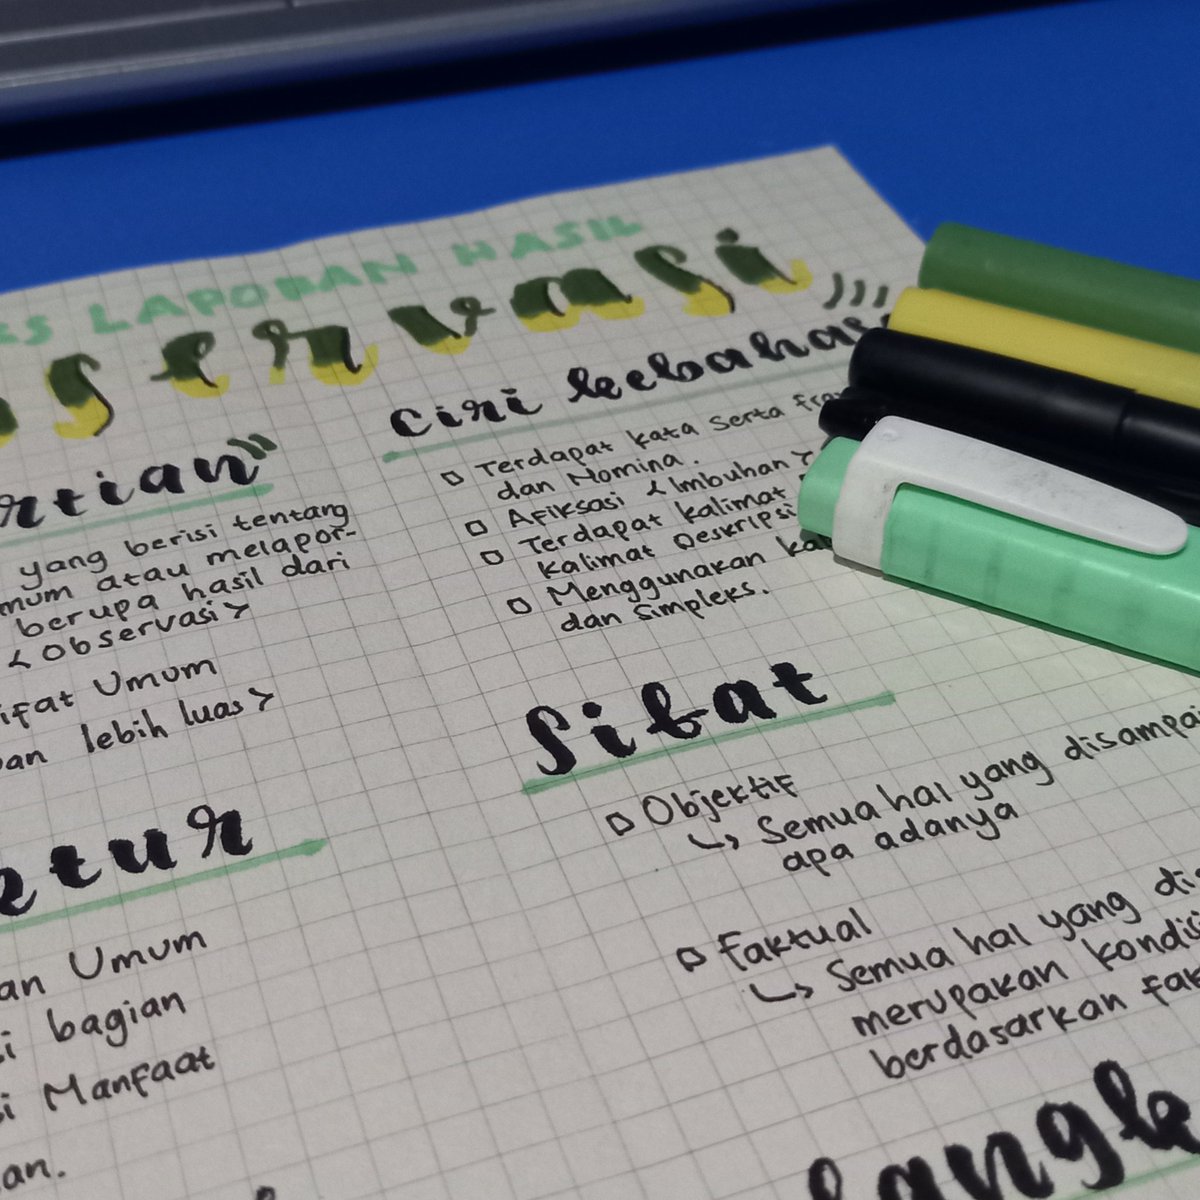 LAPORAN HASIL
servasi
rtian
yang berisi tentang
atau melapor-
berupa hasil dari
<Observasi>
Umum
lebih luas>
ktur
Umum
bagian
Manfaat
Ciri kebahasa
Terdapat kata serta
dan Nomina.
Afiksasi <Imbuhan>
Terdapat kalimat
kalimat Deskripsi
Menggunakan
dan Simpleks.
Sifat
Objektif
↳ Semua hal yang
apa adanya
Faktual
↳ Semua hal yang
merupakan
berdasarkan